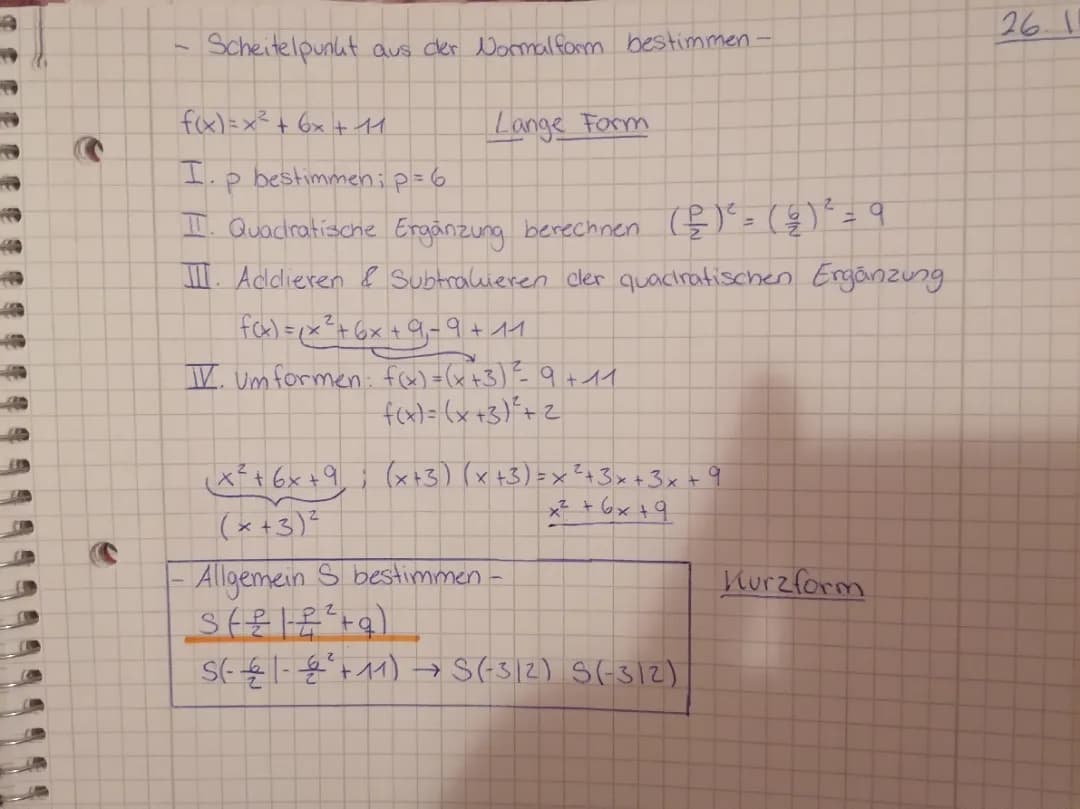 26.1
- Scheitelpunkt aus der Normalform bestimmen -
f(x)=x² + 6x + 11 Lange Form
I. p bestimmen; p=6
II. Quadratische Ergänzung berechnen (p/2)² = (6/2)² = 9
III. Addieren & Subtrahieren der quadratischen Ergänzung
f(x)=(x²+6x+9)-9+11
IV. Umformen: f(x)=(x+3)²-9+11
f(x)=(x+3)²+2
x²+6x+9 ; (x+3)(x+3)=x²+3x+3x+9
(x+3)² x²+6x+9
- Allgemein S bestimmen - Kurzform
S(-p/2|-p/4²+q)
S(-6/2|-6/2²+11) → S(-3|2) S(-3|2)